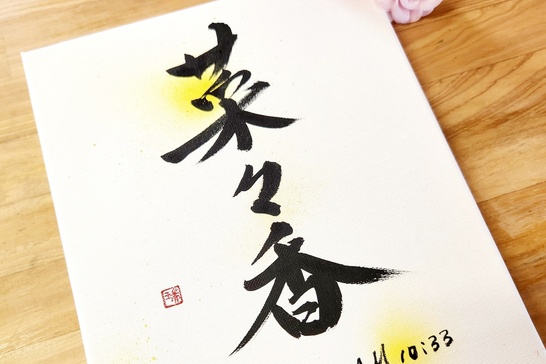 菜々香
AM 10:33